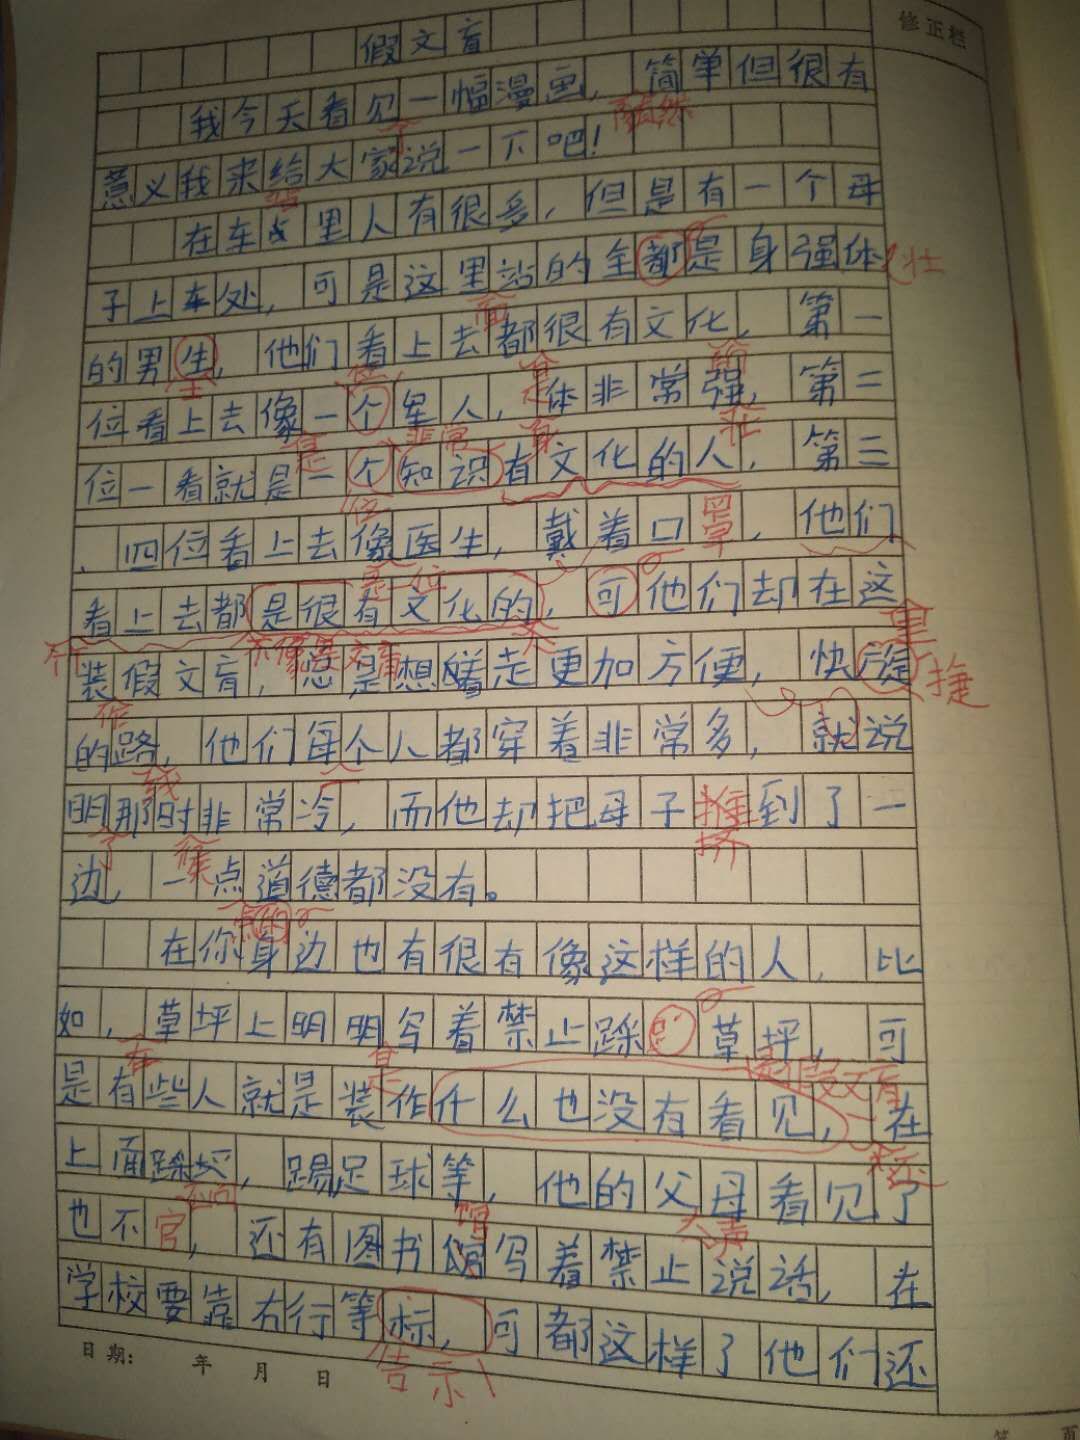 修正栏
假文盲
我今天看见一幅漫画，简单但很有
了 虽然
意义我来给大家说一下吧！
站
在车站里人有很多，但是有一个母
子上车处，可是这里站的全都是身强体
壮
的男生，他们看上去都很有文化，第一
位看上去像一个军人，体非常强，第二
是 非常 身 壮
位一看就是一个知识有文化的人，第三
位
、四位看上去像医生，戴着口罩，他们
是一位
看上去都是很有文化的，可他们却在这
里
装假文盲，总是想走更加方便，快捷
作 捷
的路，他们每个人都穿着非常多，就说
明那时非常冷，而他却把母子推到了一
了 挤
边，一点道德都没有。
在你身边也有很有像这样的人，比
如，草坪上明明写着禁止踩草坪，可
是假文盲
是有些人就是装作什么也没有看见，在
上面踩坏，踢足球等，他的父母看见了
也不官，还有图书馆写着禁止说话，在
馆 大声
学校要靠右行等标，可都这样了他们还
告示
日期： 年 月 日
第 页